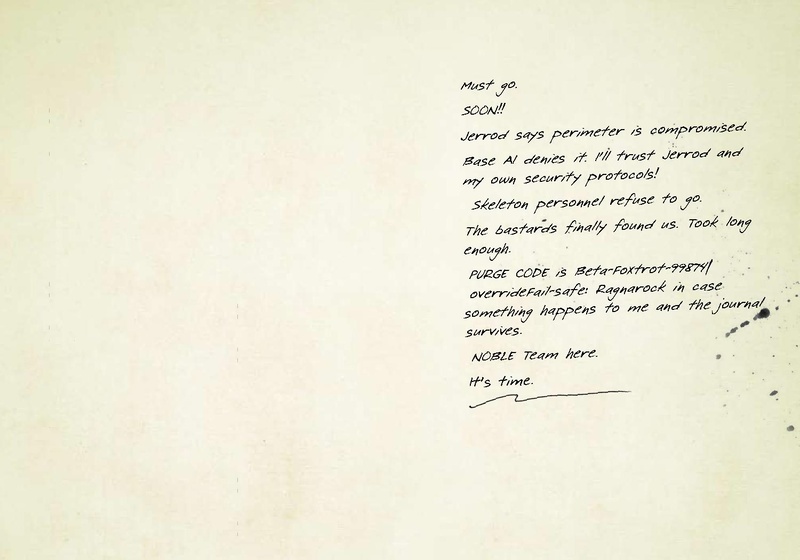 Must go.
SOON!!
Jerrod says perimeter is compromised.
Base AI denies it. I'll trust Jerrod and
my own security protocols!
Skeleton personnel refuse to go.
The bastards finally found us. Took long
enough.
PURGE CODE is Beta-Foxtrot-99874/
overrideFail-safe: Ragnarock in case
something happens to me and the journal
survives.
NOBLE Team here.
It's time.